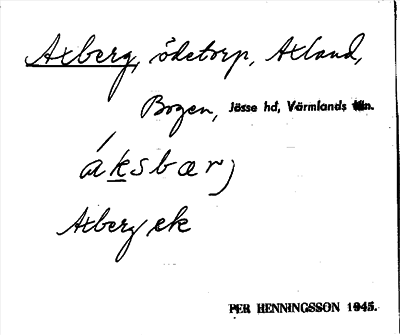 Axberg, ödetorp, Axland,
Bogen, Jösse hd, Värmlands län.
áksbærj
Axberg ek
PER HENNINGSSON 1945.